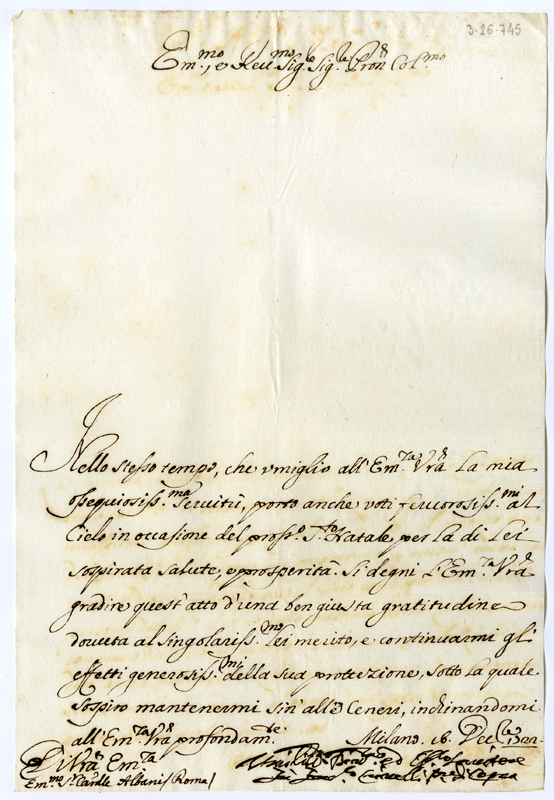 3-26-745
Em.mo, e Reu.mo Sig.r Sig.r Pron Col.mo
Nello stesso tempo, che vmiglio all'Em.za Vrã La mia
ossequiosiss.ma Seruitù, porto anche voti feruorosiss.mi al
Cielo in occasione del pross.o S.to Natale per La di Lei
sospirata salute, e prosperità. Si degni L'Em.za Vrã
gradire quest'atto d'una ben giusta gratitudine
douuta al singolariss.mo Lei merito, e continuarmi gl'
effetti generosiss.mi della sua protezzione, sotto La quale
sospiro mantenermi sin' alle Ceneri, inchinandomi
all'Em.za Vrã profondam.te Milano 16. Dec.re 1722
Di Vrã Em.za
Em.mo S.r Cardle Albani / Roma /